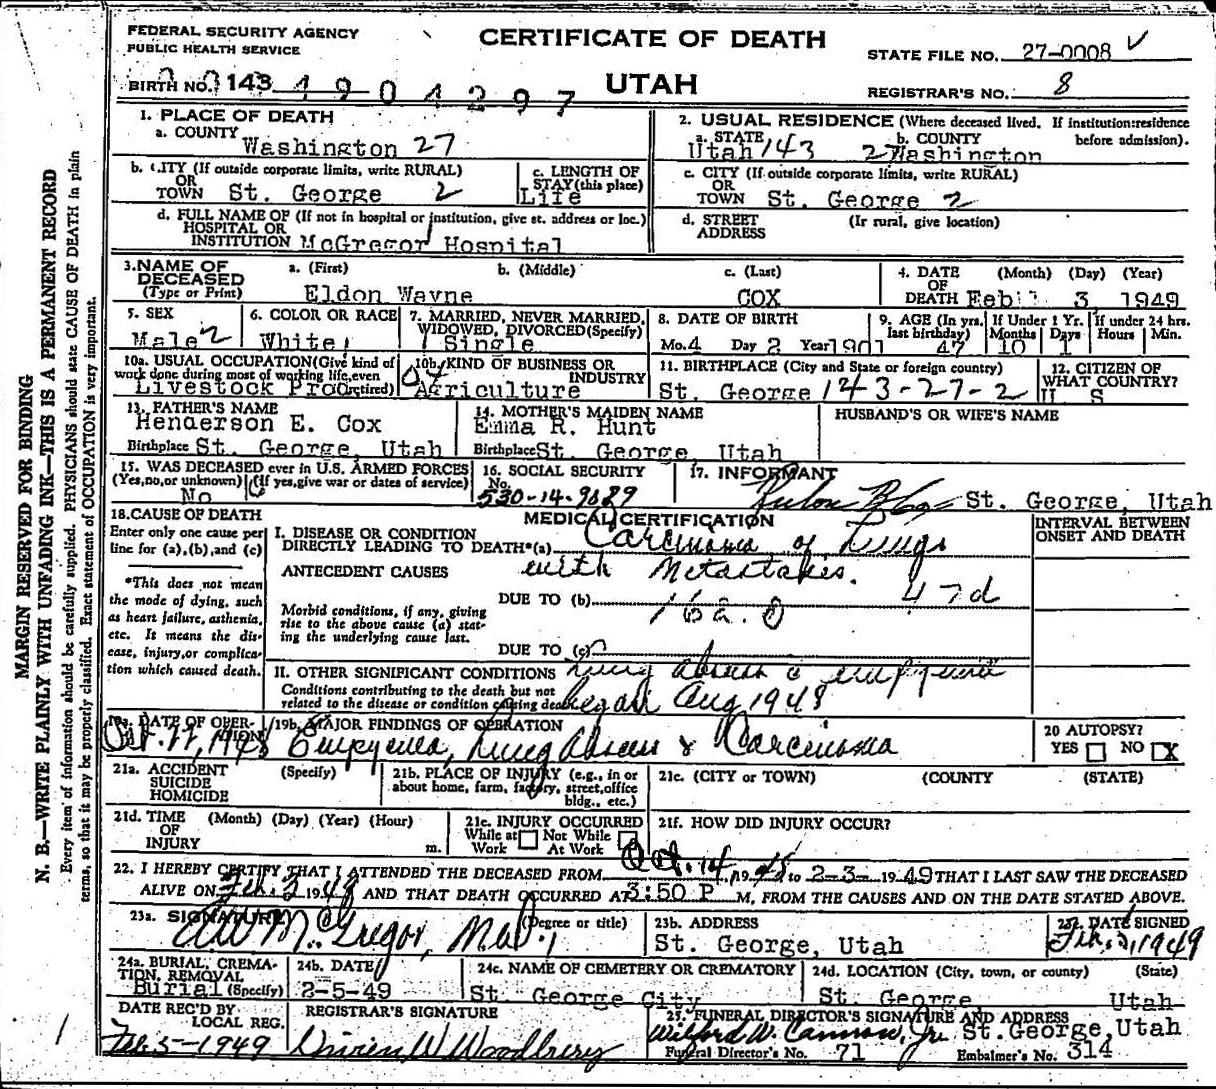 FEDERAL SECURITY AGENCY
PUBLIC HEALTH SERVICE
CERTIFICATE OF DEATH
STATE FILE NO. 27-0008
BIRTH NO. 143 4904297
UTAH
REGISTRAR'S NO. 8
1. PLACE OF DEATH
a. COUNTY Washington 27
2. USUAL RESIDENCE (Where deceased lived. If institution: residence before admission).
a. STATE Utah 143 b. COUNTY 27 Washington
b. CITY (If outside corporate limits, write RURAL) OR TOWN St. George 2
c. LENGTH OF STAY (this place) Life
c. CITY (If outside corporate limits, write RURAL) OR TOWN St. George 2
d. FULL NAME OF (If not in hospital or institution, give st. address or loc.) HOSPITAL OR INSTITUTION McGregor Hospital
d. STREET ADDRESS (If rural, give location)
3. NAME OF DECEASED (Type or Print)
a. (First) b. (Middle) c. (Last)
Eldon Wayne COX
4. DATE OF DEATH (Month) (Day) (Year)
3 1949
5. SEX Male 2
6. COLOR OR RACE White 1
7. MARRIED, NEVER MARRIED, WIDOWED, DIVORCED (Specify) Single
8. DATE OF BIRTH Mo. 4 Day 2 Year 1901
9. AGE (In yrs. last birthday) 47 If Under 1 Yr. Months 10 Days 1 If under 24 hrs. Hours Min.
10a. USUAL OCCUPATION (Give kind of work done during most of working life, even retired) Livestock Prod
10b. KIND OF BUSINESS OR INDUSTRY Agriculture
11. BIRTHPLACE (City and State or foreign country) St. George 143-27-2
12. CITIZEN OF WHAT COUNTRY? U S
13. FATHER'S NAME Henderson E. Cox
Birthplace St. George, Utah
14. MOTHER'S MAIDEN NAME Emma R. Hunt
Birthplace St. George, Utah
HUSBAND'S OR WIFE'S NAME
15. WAS DECEASED ever in U.S. ARMED FORCES (Yes, no, or unknown) (If yes, give war or dates of service) No
16. SOCIAL SECURITY No.
17. INFORMANT St. George, Utah
18. CAUSE OF DEATH
Enter only one cause per line for (a), (b), and (c)
*This does not mean the mode of dying, such as heart failure, asthenia, etc. It means the disease, injury, or complication which caused death.
MEDICAL CERTIFICATION
I. DISEASE OR CONDITION DIRECTLY LEADING TO DEATH*(a) Carcinoma of Lungs
with Metastases.
ANTECEDENT CAUSES
Morbid conditions, if any, giving rise to the above cause (a) stating the underlying cause last.
DUE TO (b) 47d
DUE TO (c)
II. OTHER SIGNIFICANT CONDITIONS Lung abscess c empyema
Conditions contributing to the death but not related to the disease or condition causing death began Aug 1948
INTERVAL BETWEEN ONSET AND DEATH
19a. DATE OF OPERATION 1948
19b. MAJOR FINDINGS OF OPERATION
Empyema, Lung Abscess & Carcinoma
20 AUTOPSY? YES NO X
21a. ACCIDENT SUICIDE HOMICIDE (Specify)
21b. PLACE OF INJURY (e.g., in or about home, farm, factory, street, office bldg., etc.)
21c. (CITY OR TOWN) (COUNTY) (STATE)
21d. TIME OF INJURY (Month) (Day) (Year) (Hour) m.
21e. INJURY OCCURRED While at Work Not While At Work
21f. HOW DID INJURY OCCUR?
22. I HEREBY CERTIFY THAT I ATTENDED THE DECEASED FROM Oct. 14, 1948 to 2-3- 1949 THAT I LAST SAW THE DECEASED
ALIVE ON Feb. 3 1949 AND THAT DEATH OCCURRED AT 3:50 P M, FROM THE CAUSES AND ON THE DATE STATED ABOVE.
23a. SIGNATURE (Degree or title) McGregor, M.D.
23b. ADDRESS St. George, Utah
23c. DATE SIGNED Feb. 3, 1949
24a. BURIAL, CREMATION, REMOVAL (Specify) Burial
24b. DATE 2-5-49
24c. NAME OF CEMETERY OR CREMATORY St. George City
24d. LOCATION (City, town, or county) (State) St. George Utah
DATE REC'D BY LOCAL REG. Feb. 5-1949
REGISTRAR'S SIGNATURE W Woodbury
25. FUNERAL DIRECTOR'S SIGNATURE AND ADDRESS
Wilford W. Cannon, Jr. St. George, Utah
Funeral Director's No. 71 Embalmer's No. 314
MARGIN RESERVED FOR BINDING
N. B.—WRITE PLAINLY WITH UNFADING INK—THIS IS A PERMANENT RECORD
Every item of information should be carefully supplied. PHYSICIANS should state CAUSE OF DEATH in plain
terms, so that it may be properly classified. Exact statement of OCCUPATION is very important.